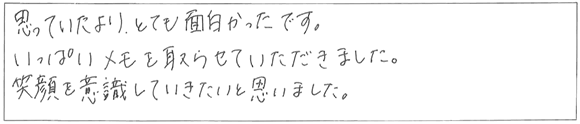 思っていたより、とても面白かったです。
いっぱいメモを取らせていただきました。
笑顔を意識していきたいと思いました。